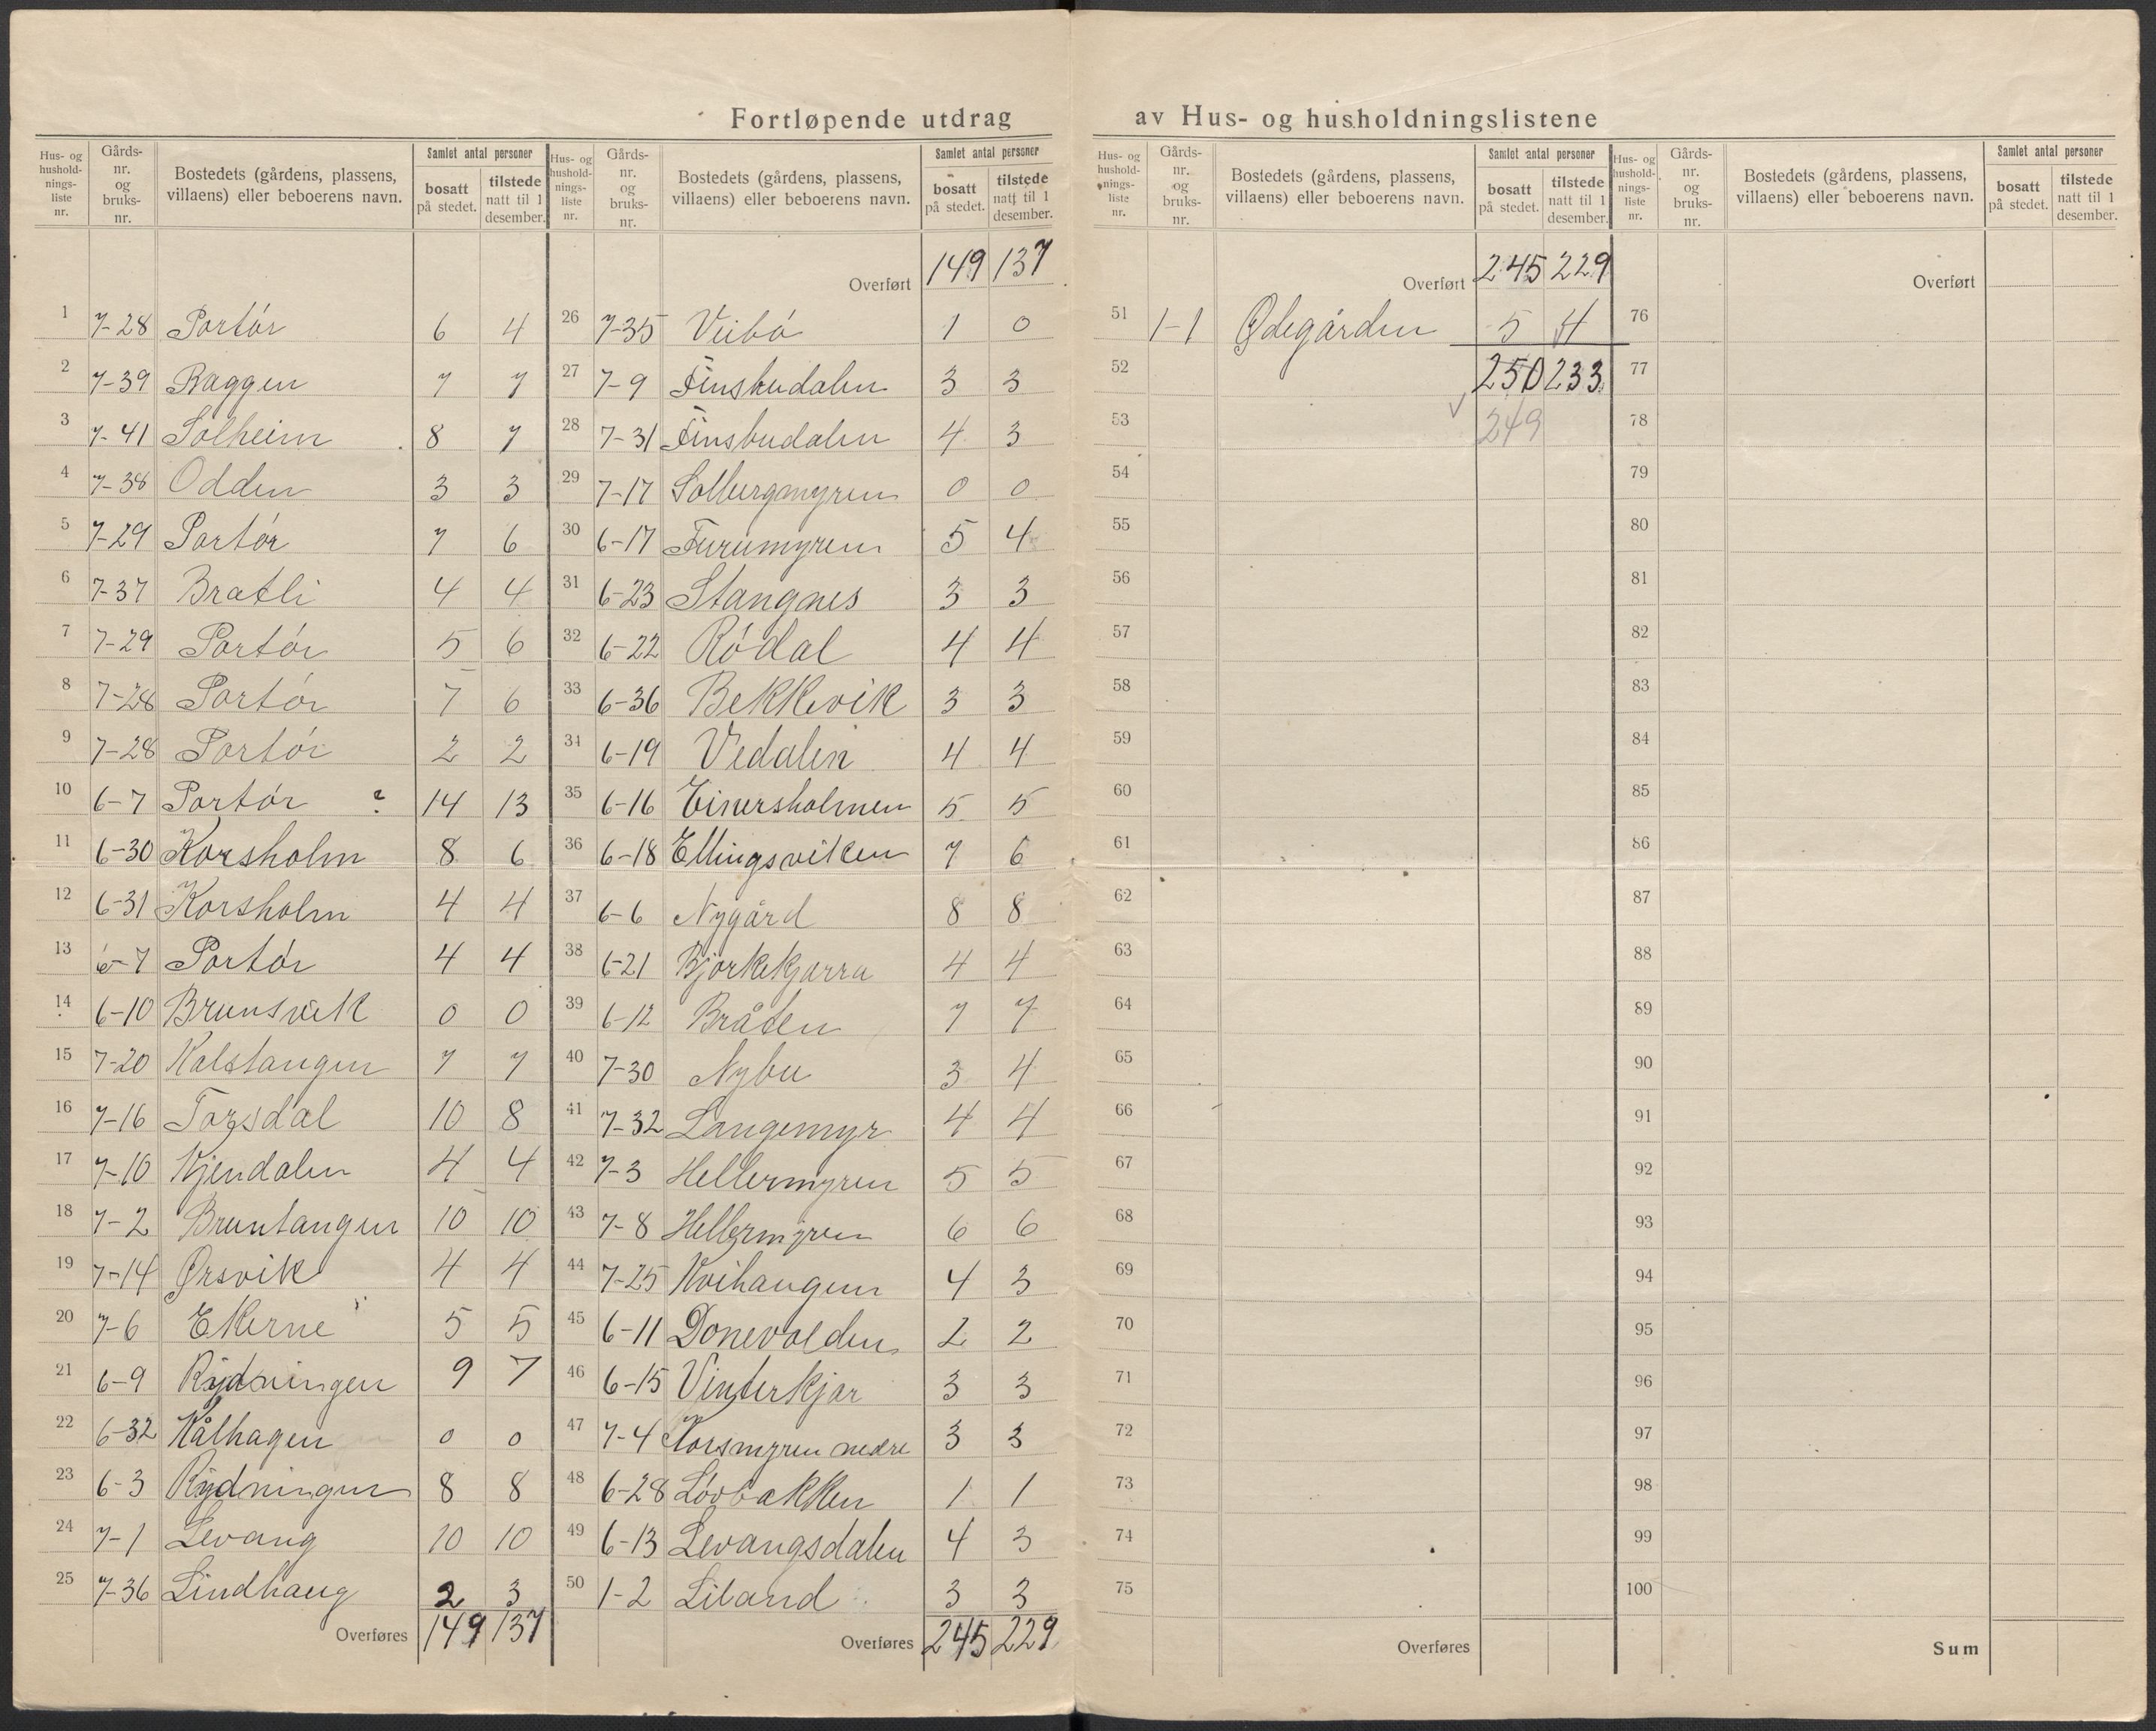 Fortløpende utdrag av Hus- og husholdningslistene
Hus- og hushold-nings-liste nr. Gårds-nr. og bruks-nr. Bostedets (gårdens, plassens, villaens) eller beboerens navn. Samlet antal personer bosatt på stedet. tilstede natt til 1 desember.
1 7-28 Portör 6 4
2 7-39 Baggen 7 7
3 7-41 Solheim 8 7
4 7-38 Odden 3 3
5 7-29 Portör 7 6
6 7-37 Bratli 4 4
7 7-29 Portör 5 6
8 7-28 Portör 7 6
9 7-28 Portör 2 2
10 6-7 Portör ? 14 13
11 6-30 Korsholm 8 6
12 6-31 Korsholm 4 4
13 6-7 Portör 4 4
14 6-10 Brunsvik 0 0
15 7-20 Kalstangen 7 7
16 7-16 Torsdal 10 8
17 7-10 Kjendalen 4 4
18 7-2 Bruntangen 10 10
19 7-14 Ørsvik 4 4
20 7-6 Ekerne 5 5
21 6-9 Rydningen 9 7
22 6-32 Kålhagen 0 0
23 6-3 Rydningen 8 8
24 7-1 Levang 10 10
25 7-36 Lindhaug 2 3
Overføres 149 137
Hus- og hushold-nings-liste nr. Gårds-nr. og bruks-nr. Bostedets (gårdens, plassens, villaens) eller beboerens navn. Samlet antal personer bosatt på stedet. tilstede natt til 1 desember.
Overført 149 137
26 7-35 Veibö 1 0
27 7-9 Finsbudalen 3 3
28 7-31 Finsbudalen 4 3
29 7-17 Solbergmyren 0 0
30 6-17 Furumyren 5 4
31 6-23 Stangnes 3 3
32 6-22 Rödal 4 4
33 6-36 Bekkevik 3 3
34 6-19 Vedalen 4 4
35 6-16 Einersholmen 5 5
36 6-18 Ellingsviken 7 6
37 6-6 Nygård 8 8
38 6-21 Bjorkekjarra 4 4
39 6-12 Bråten 7 7
40 7-30 Nybu 3 4
41 7-32 Langemyr 4 4
42 7-3 Hellermyren 5 5
43 7-8 Hellermyren 6 6
44 7-25 Kvihaugen 4 3
45 6-11 Donevolden 2 2
46 6-15 Vinterkjar 3 3
47 7-4 Korsmyren nedre 3 3
48 6-28 Lövbakken 1 1
49 6-13 Levangsdalen 4 3
50 1-2 Liland 3 3
Overføres 245 229
Hus- og hushold-nings-liste nr. Gårds-nr. og bruks-nr. Bostedets (gårdens, plassens, villaens) eller beboerens navn. Samlet antal personer bosatt på stedet. tilstede natt til 1 desember.
Overført 245 229
51 1-1 Ødegården 5 4
52 250 233
53 249
54
55
56
57
58
59
60
61
62
63
64
65
66
67
68
69
70
71
72
73
74
75
Overføres
Hus- og hushold-nings-liste nr. Gårds-nr. og bruks-nr. Bostedets (gårdens, plassens, villaens) eller beboerens navn. Samlet antal personer bosatt på stedet. tilstede natt til 1 desember.
Overført
76
77
78
79
80
81
82
83
84
85
86
87
88
89
90
91
92
93
94
95
96
97
98
99
100
Sum